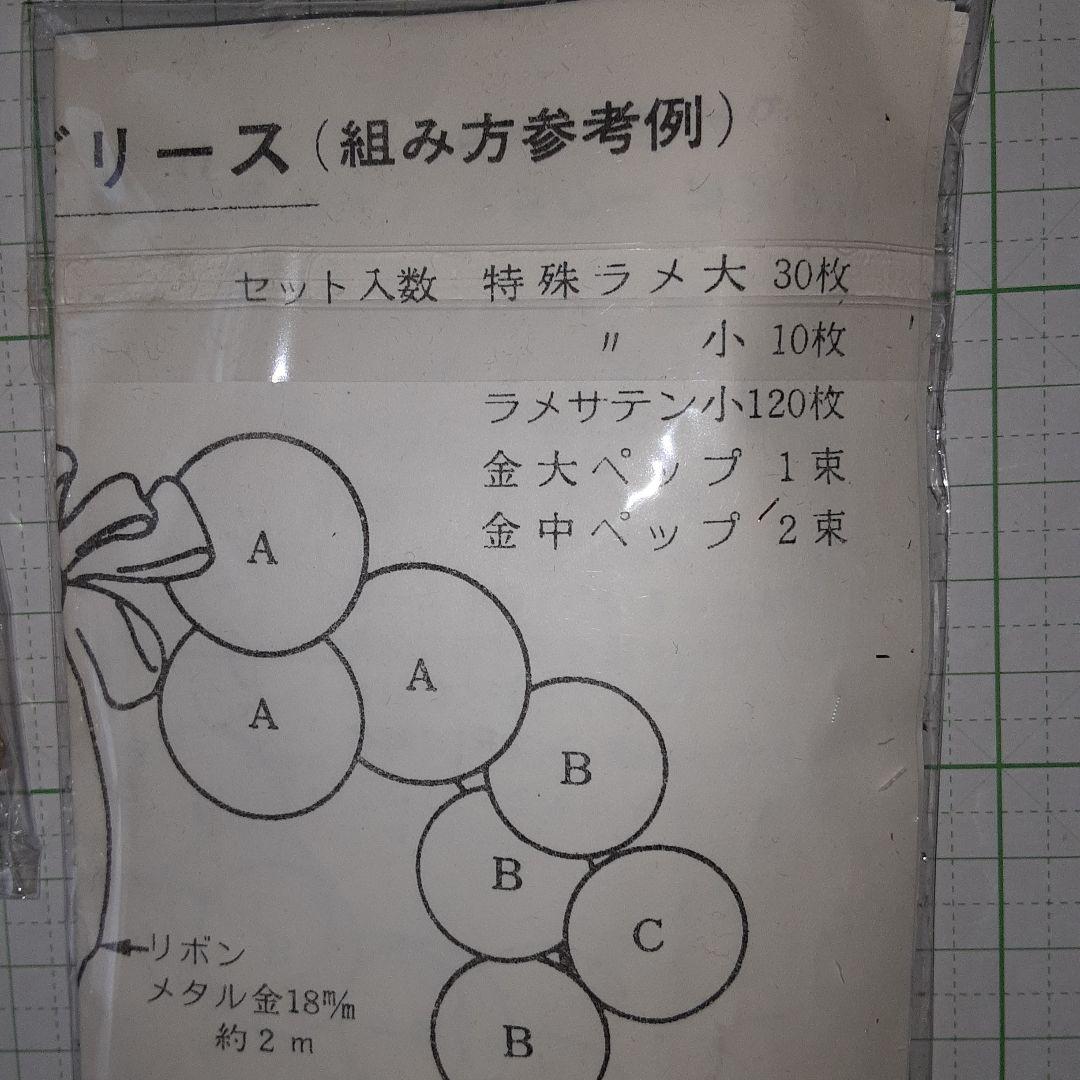 リース（組み方参考例）
セット入数 特殊ラメ大 30枚
〃 小 10枚
ラメサテン小120枚
金大ペップ 1束
金中ペップ 2束
A
A
A
B
B
C
B
リボン
メタル金18m/m
約2m